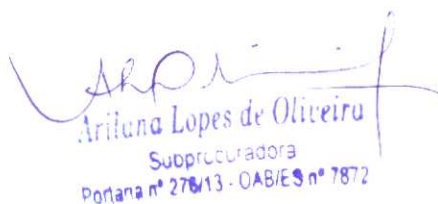 Arilana Lopes de Oliveira
Subprocuradora
Portaria nº 278/13 - OAB/ES nº 7872